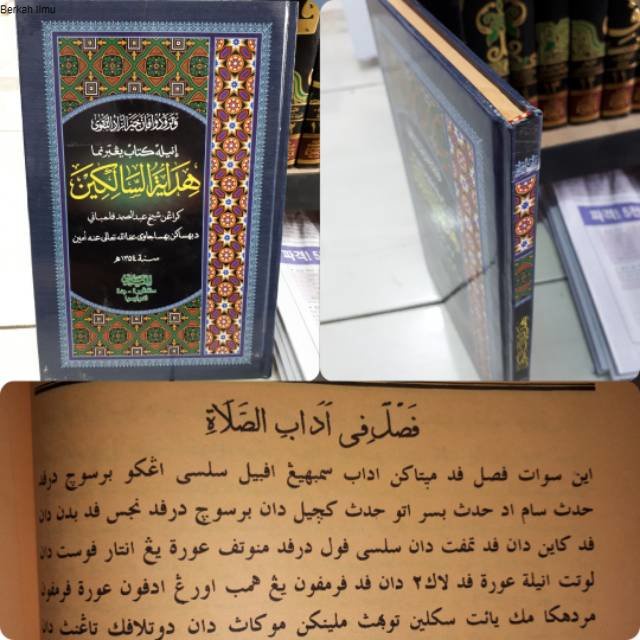 Berkah Ilmu
وتزودوا فإن خير الزاد التقوى
إنيله كتاب يڠبرنما
هداية السالكين
كراڠن شيخ عبد الصمد فلمباني
دبهساكن بهسا جاوي عفا الله تعالى عنه آمين
سنة ١٣٥٤ هـ
فصل في آداب الصلاة
اين سوات فصل فد مپتاكن اداب سمبهيڠ افبيل سلسى اڠكو برسوچ درفد
حدث سام اد حدث بسر اتو حدث كچيل دان برسوچ درفد نجس فد بدن دان
فد كاين دان فد تمفت دان سلسى فول درفد منوتف عورة يڠ انتار فوست دان
لوتت ايتله عورة فد لاك٢ دان فد فرمفون يڠ همب اورڠ ادفون عورة فرمفون
مردهكا مك يائت سكلين توبهڽ ملينكن موكاڽ دان دوتلافك تاڠنڽ دان